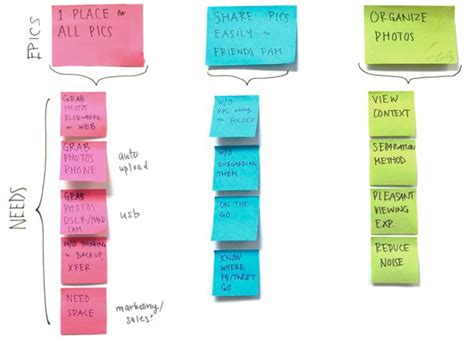 EPICS
1 PLACE for
ALL PICS
SHARE PICS
EASILY to
FRIENDS FAM
ORGANIZE
PHOTOS
NEEDS
GRAB
PHOTOS
ELSEWHERE
on WEB
GRAB
PHOTOS
PHONE
auto
upload
GRAB
PHOTOS
DSLR/HAND
CAM
usb
W/O THINKING
to BACKUP,
XFER
NEED
SPACE
marketing/
sales?
W/O
PPL
to FOLDER
W/O
ONBOARDING
THEM
ON THE
GO
KNOW
WHERE
FB/TWEET
GO
VIEW
CONTEXT
SEPARATION
METHOD
PLEASANT
VIEWING
EXP.
REDUCE
NOISE